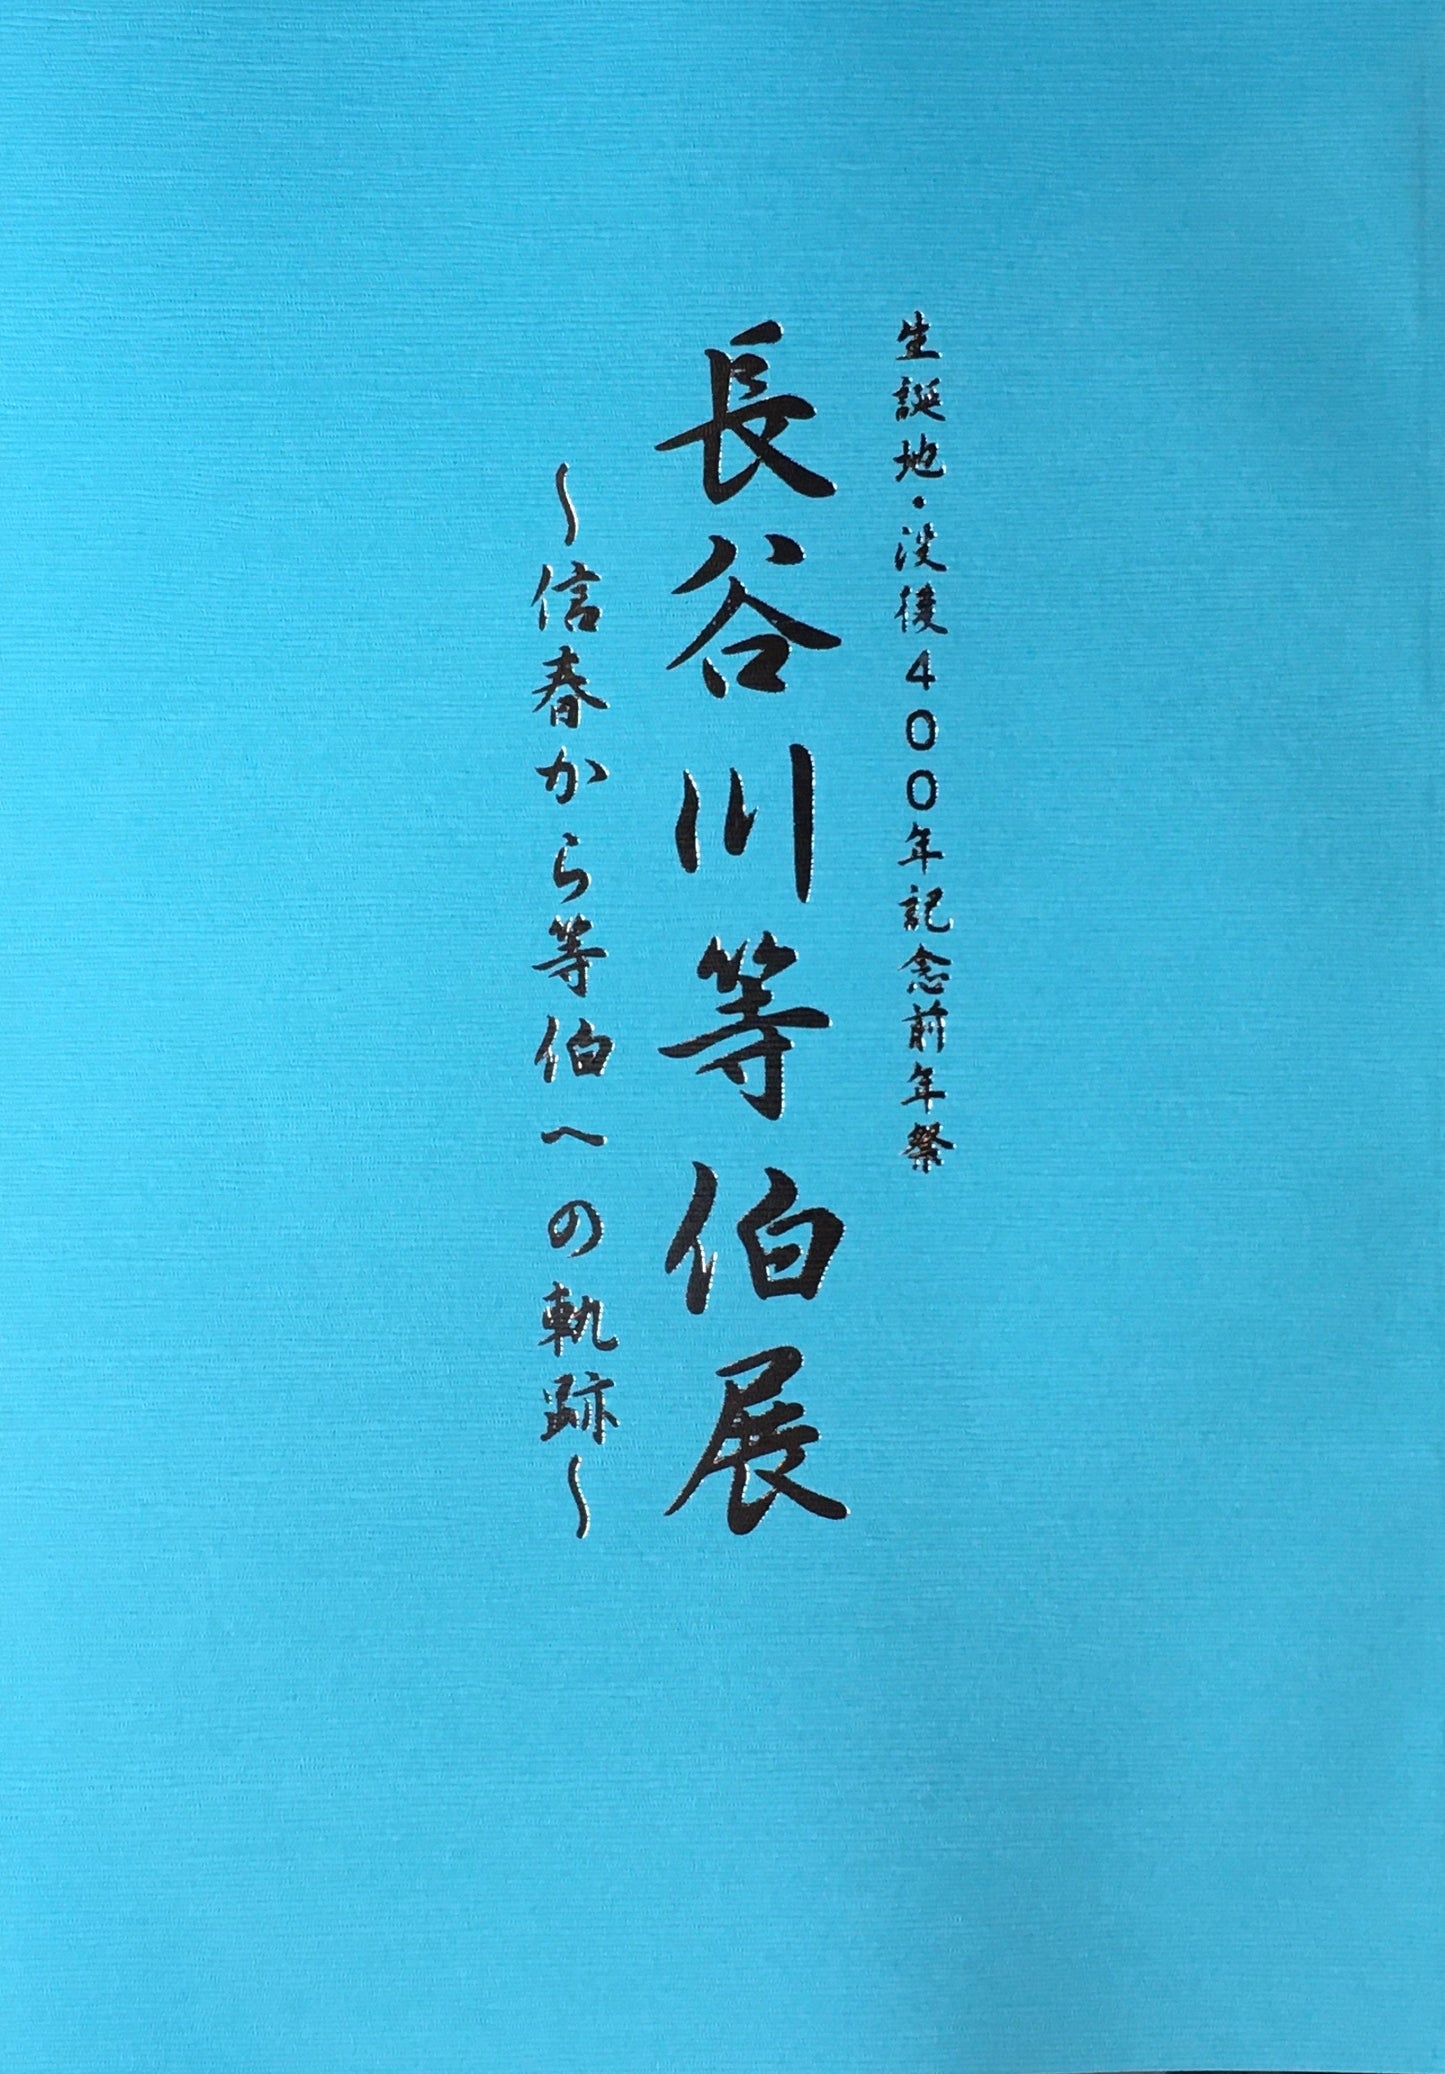 生誕地・没後４００年記念前年祭
長谷川等伯展
～信春から等伯への軌跡～